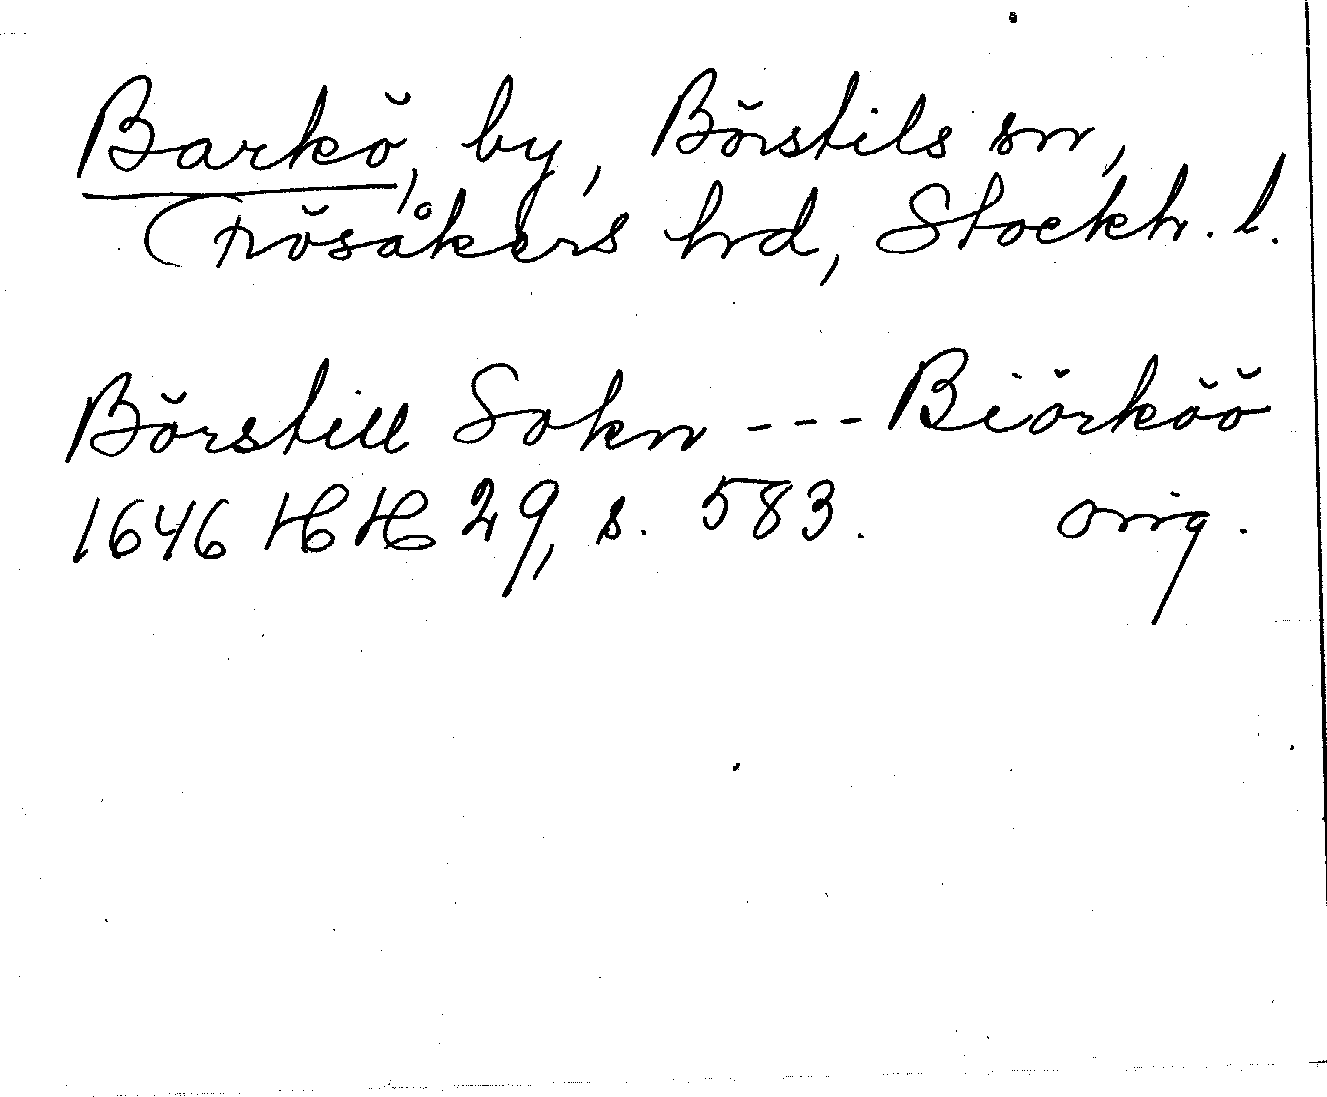 Barkö, by, Börstils sn,
Frösåkers hrd, Stockh. l.
Börstill Sokn --- Biörköö
1646 HH 29, s. 583. orig.